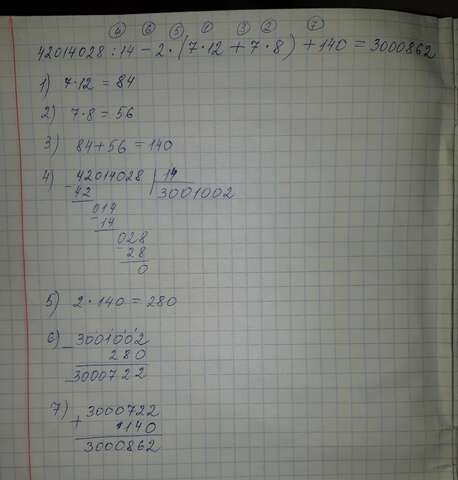 4 6 5 1 3 2 7
42014028 : 14 - 2 · (7 · 12 + 7 · 8) + 140 = 3000862
1) 7 · 12 = 84
2) 7 · 8 = 56
3) 84 + 56 = 140
4) - 42014028 | 14
42 3001002
- 014
14
- 028
28
0
5) 2 · 140 = 280
6) - 3001002
280
3000722
7) + 3000722
140
3000862